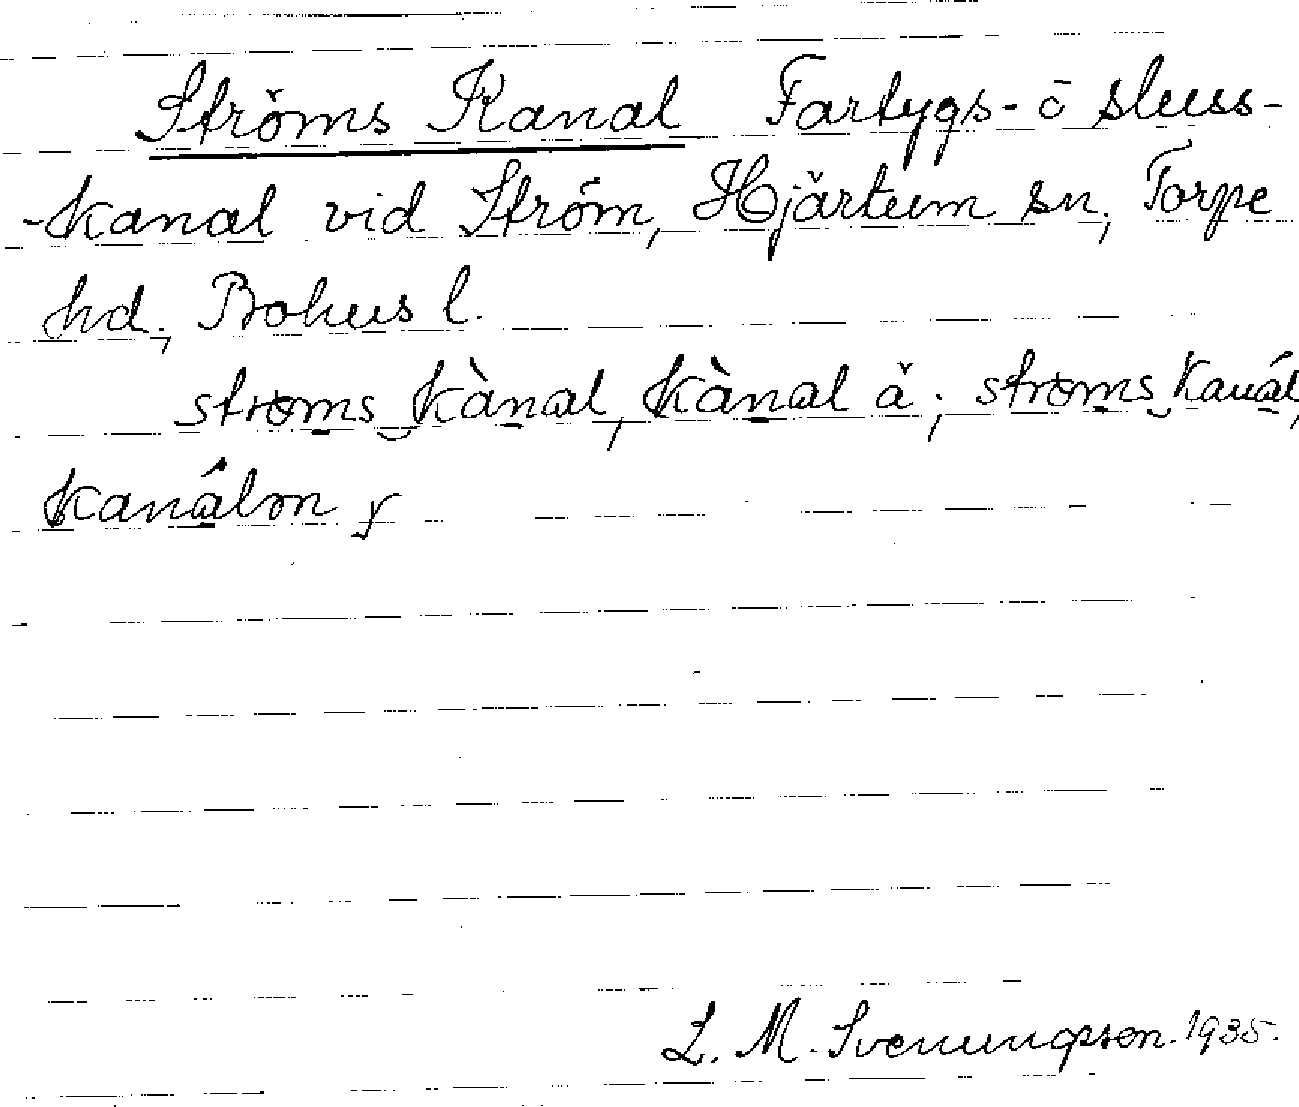 Ströms Kanal Fartygs- o sluss-
-kanal vid Ström, Hjärtum sn, Torpe
hd, Bohus l.
strøms kànal, kànal ǎ; strøms kanál,
kanálon y
L. M. Svenungsson. 1935.